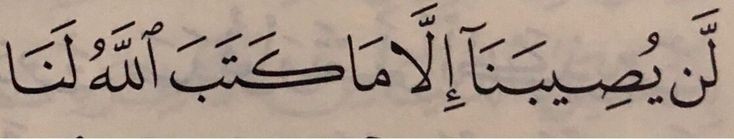 لَّن يُصِيبَنَآ إِلَّا مَا كَتَبَ ٱللَّهُ لَنَا